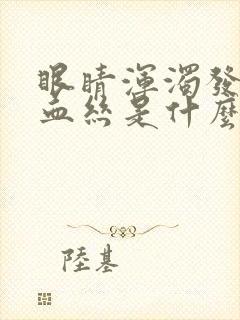 眼睛渾濁發
血絲是什麼
陸基